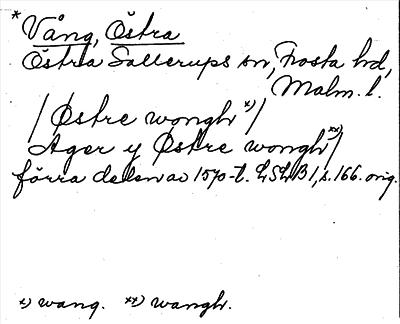 * Vång, Östra
Östra Sallerups sn, Frosta hd,
Malm. l.
/ Østre wongh *) /
Ager y Østre wongh **) /
förra delen av 1570-t. LSLB 1, s. 166. orig.
*) wang. **) wangh.